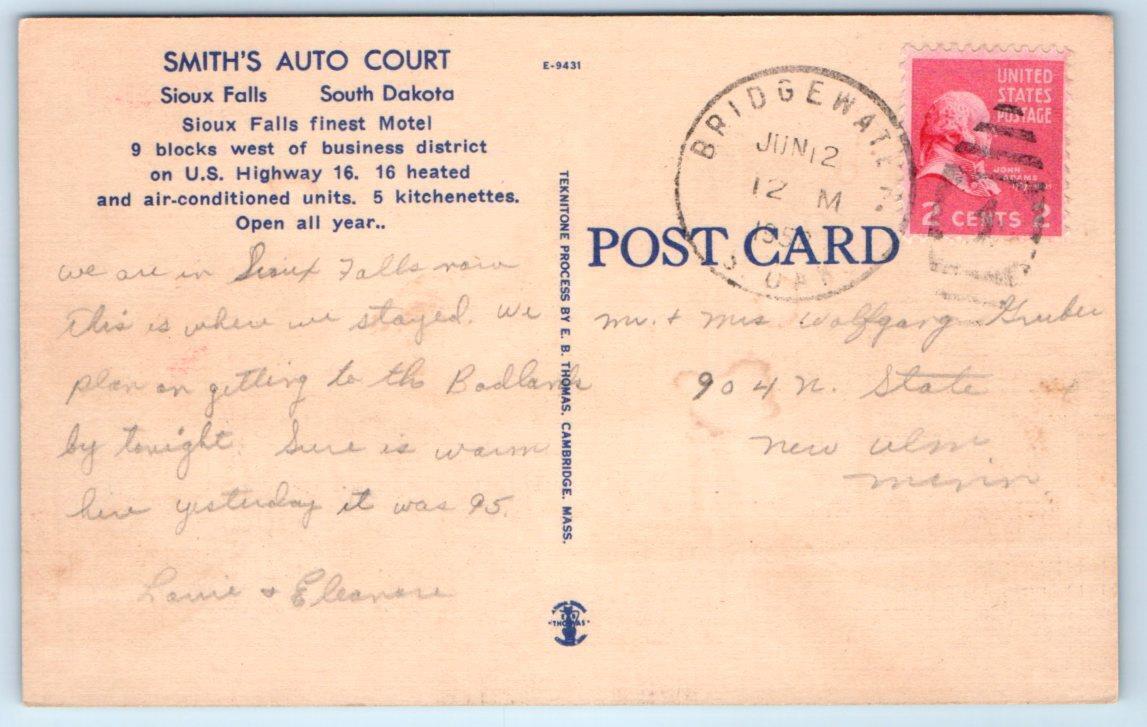 SMITH'S AUTO COURT
Sioux Falls South Dakota
Sioux Falls finest Motel
9 blocks west of business district
on U.S. Highway 16. 16 heated
and air-conditioned units. 5 kitchenettes.
Open all year..
we are in Sioux Falls now
this is where we stayed. We
plan on getting to the Badlands
by tonight. Sure is warm
here yesterday it was 95.
& Eleanore
E-9431
TEKNITONE PROCESS BY E. B. THOMAS, CAMBRIDGE, MASS.
"THOMAS"
POST CARD
BRIDGEWATE
JUN 12
12 M
UNITED
STATES
POSTAGE
JOHN
ADAMS
2 CENTS 2
Mr. + Mrs Wolfgang Gruber
904 N. State
New Ulm
Minn.